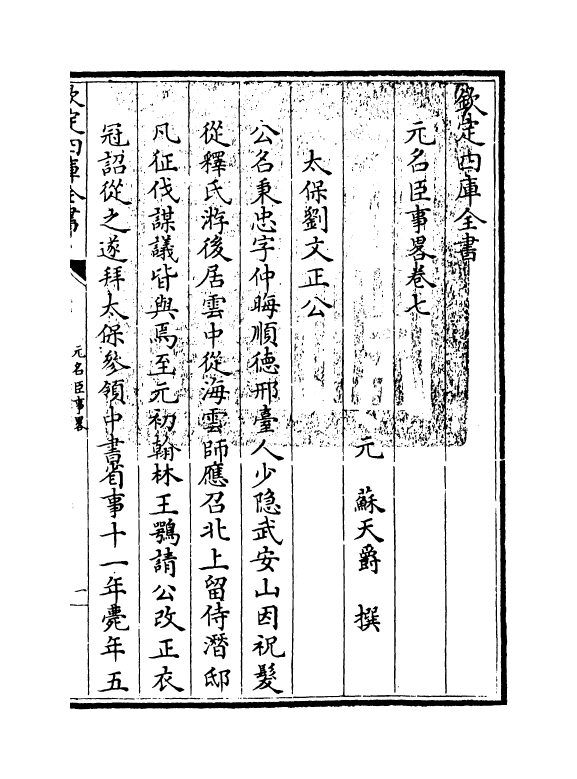 欽定四庫全書
元名臣事畧卷七
元　蘇天爵　撰
太保劉文正公
公名秉忠字仲晦順德邢臺人少隐武安山因祝髮
從釋氏游後居雲中從海雲師應召北上留侍潛邸
凡征伐謀議皆與焉至元初翰林王鶚請公改正衣
冠詔從之遂拜太保參領中書省事十一年薨年五
欽定四庫全書
元名臣事畧
一